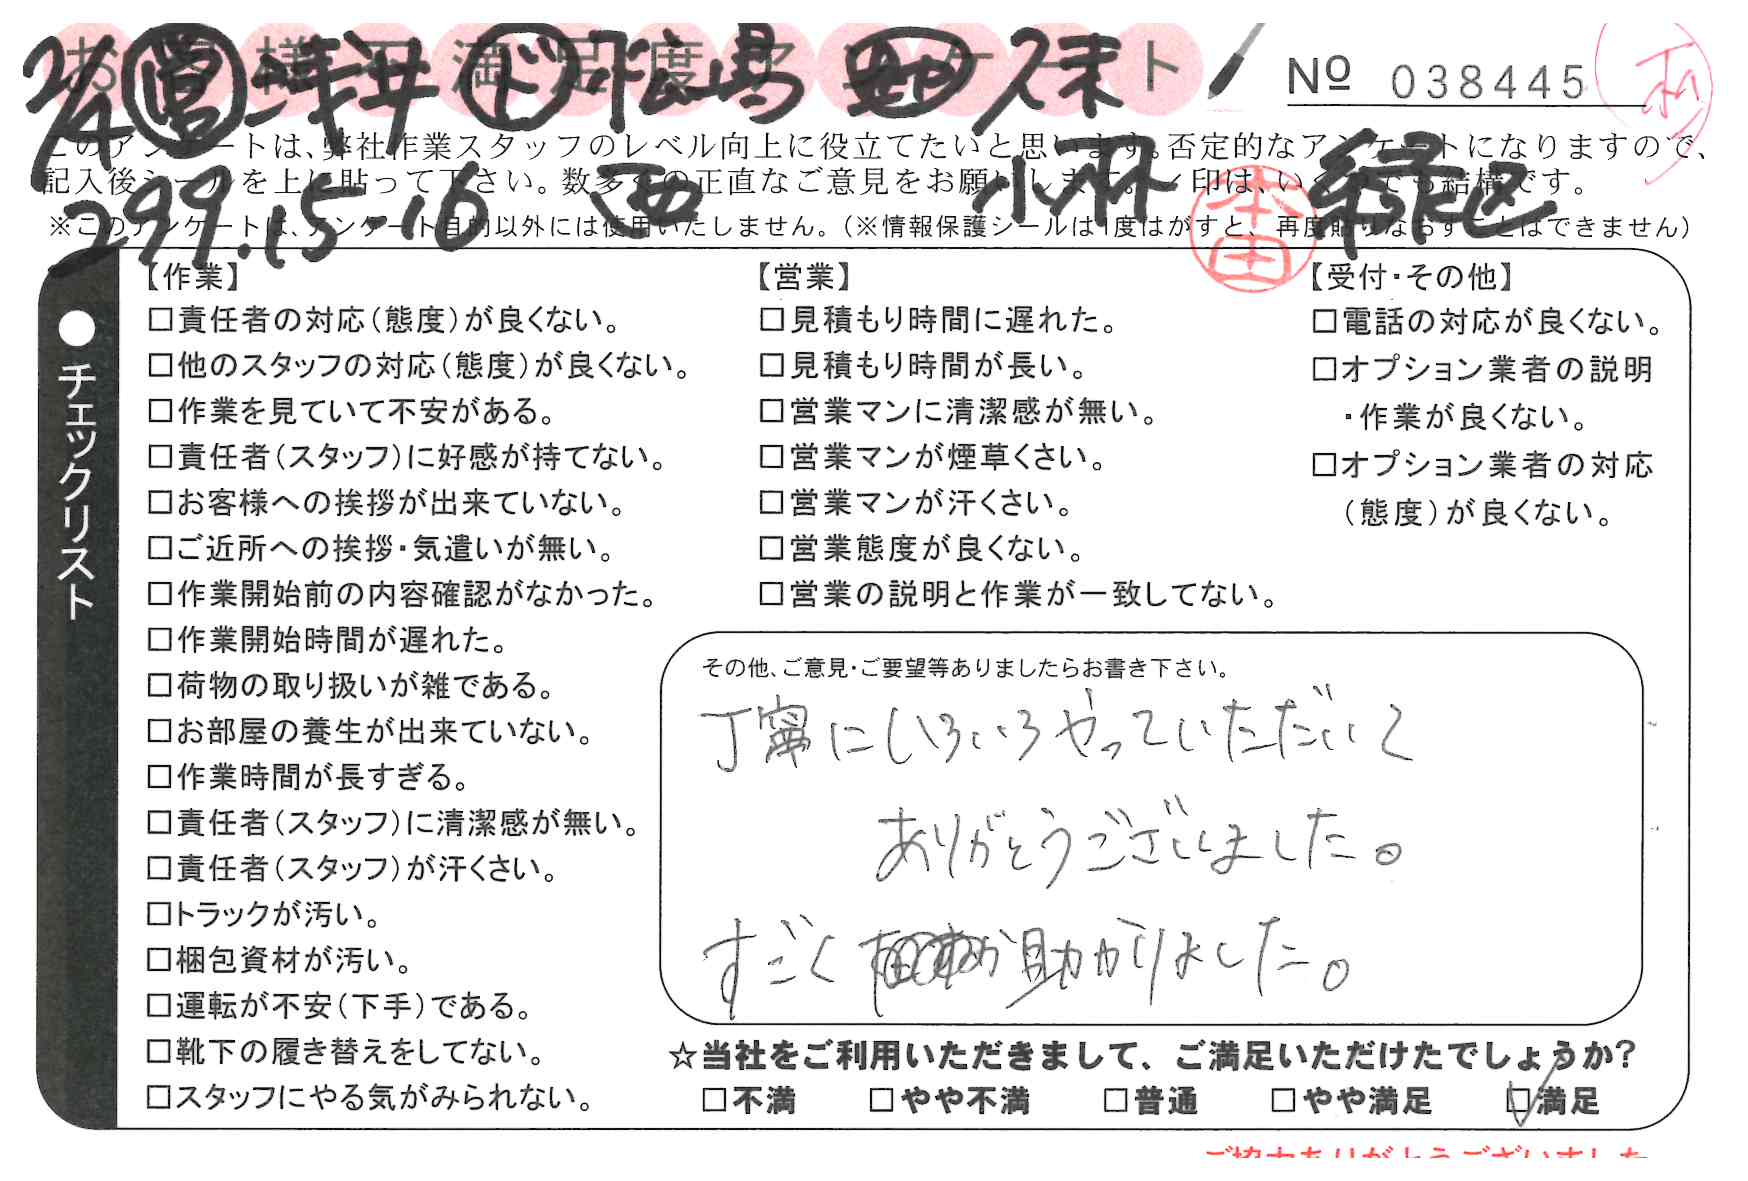 お客様不満足度アンケート
Nº 038445
2/4 営 浅井 ド 松島 久末
このアンケートは、弊社作業スタッフのレベル向上に役立てたいと思います。否定的なアンケートになりますので、
記入後シールを上に貼って下さい。数多くの正直なご意見をお願いします。✓印は、いくつでも結構です。
299.15-16 西 小林 緑区
本田
※このアンケートは、アンケート目的以外には使用いたしません。（※情報保護シールは1度はがすと、再度貼りなおすことはできません）
●チェックリスト
【作業】
□責任者の対応（態度）が良くない。
□他のスタッフの対応（態度）が良くない。
□作業を見ていて不安がある。
□責任者（スタッフ）に好感が持てない。
□お客様への挨拶が出来ていない。
□ご近所への挨拶・気遣いが無い。
□作業開始前の内容確認がなかった。
□作業開始時間が遅れた。
□荷物の取り扱いが雑である。
□お部屋の養生が出来ていない。
□作業時間が長すぎる。
□責任者（スタッフ）に清潔感が無い。
□責任者（スタッフ）が汗くさい。
□トラックが汚い。
□梱包資材が汚い。
□運転が不安（下手）である。
□靴下の履き替えをしてない。
□スタッフにやる気がみられない。
【営業】
□見積もり時間に遅れた。
□見積もり時間が長い。
□営業マンに清潔感が無い。
□営業マンが煙草くさい。
□営業マンが汗くさい。
□営業態度が良くない。
□営業の説明と作業が一致してない。
【受付・その他】
□電話の対応が良くない。
□オプション業者の説明
・作業が良くない。
□オプション業者の対応
（態度）が良くない。
その他、ご意見・ご要望等ありましたらお書き下さい。
丁寧にいろいろやっていただいて
ありがとうございました。
すごく 助かりました。
☆当社をご利用いただきまして、ご満足いただけたでしょうか？
□不満 □やや不満 □普通 □やや満足 ☑満足
ご協力ありがとうございました